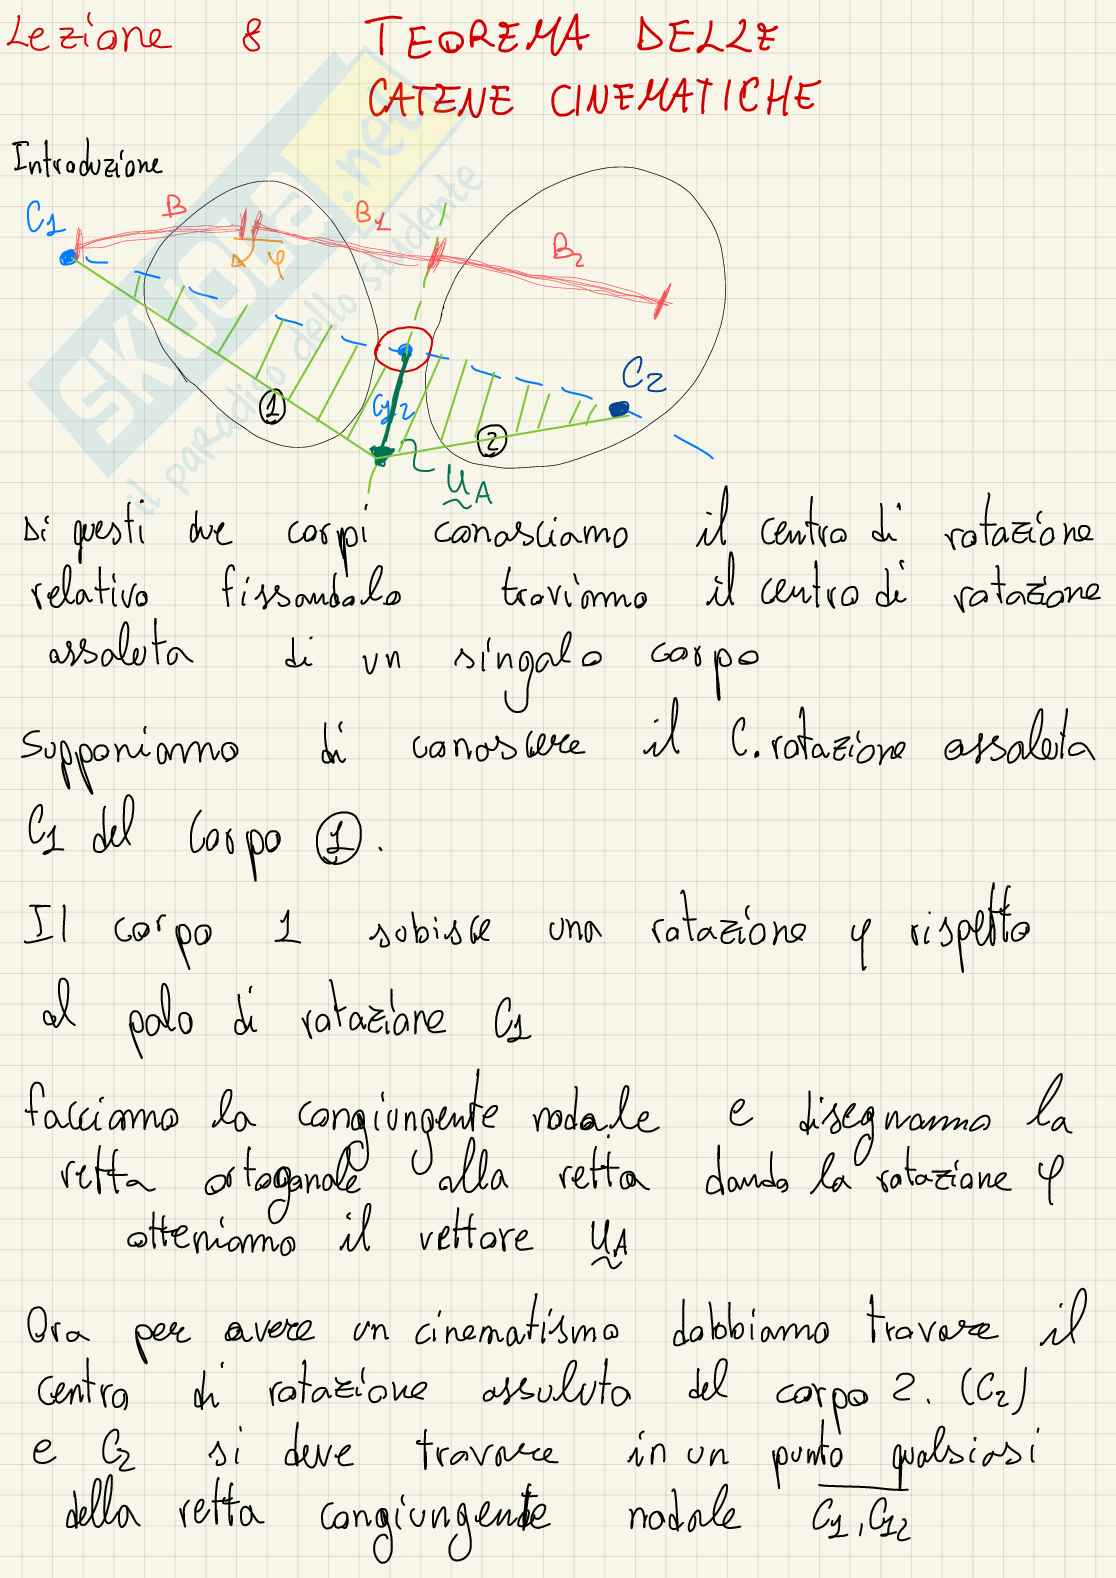 Lezione 8 TEOREMA DELLE
CATENE CINEMATICHE
Introduzione
C1 B B1 B2
φ
C2
1 C12 2
uA
SKUOLA.net
il paradiso dello studente
Di questi due corpi conosciamo il centro di rotazione
relativo fissandolo troviamo il centro di rotazione
assoluta di un singolo corpo
Supponiamo di conoscere il C.rotazione assoluta
C1 del Corpo 1.
Il corpo 1 subisce una rotazione φ rispetto
al polo di rotazione C1
facciamo la congiungente nodale e disegnamo la
retta ortogonale alla retta dando la rotazione φ
otteniamo il vettore uA
Ora per avere un cinematismo dobbiamo trovare il
centro di rotazione assoluto del corpo 2. (C2)
e C2 si deve trovare in un punto qualsiasi
della retta congiungente nodale C1,C12